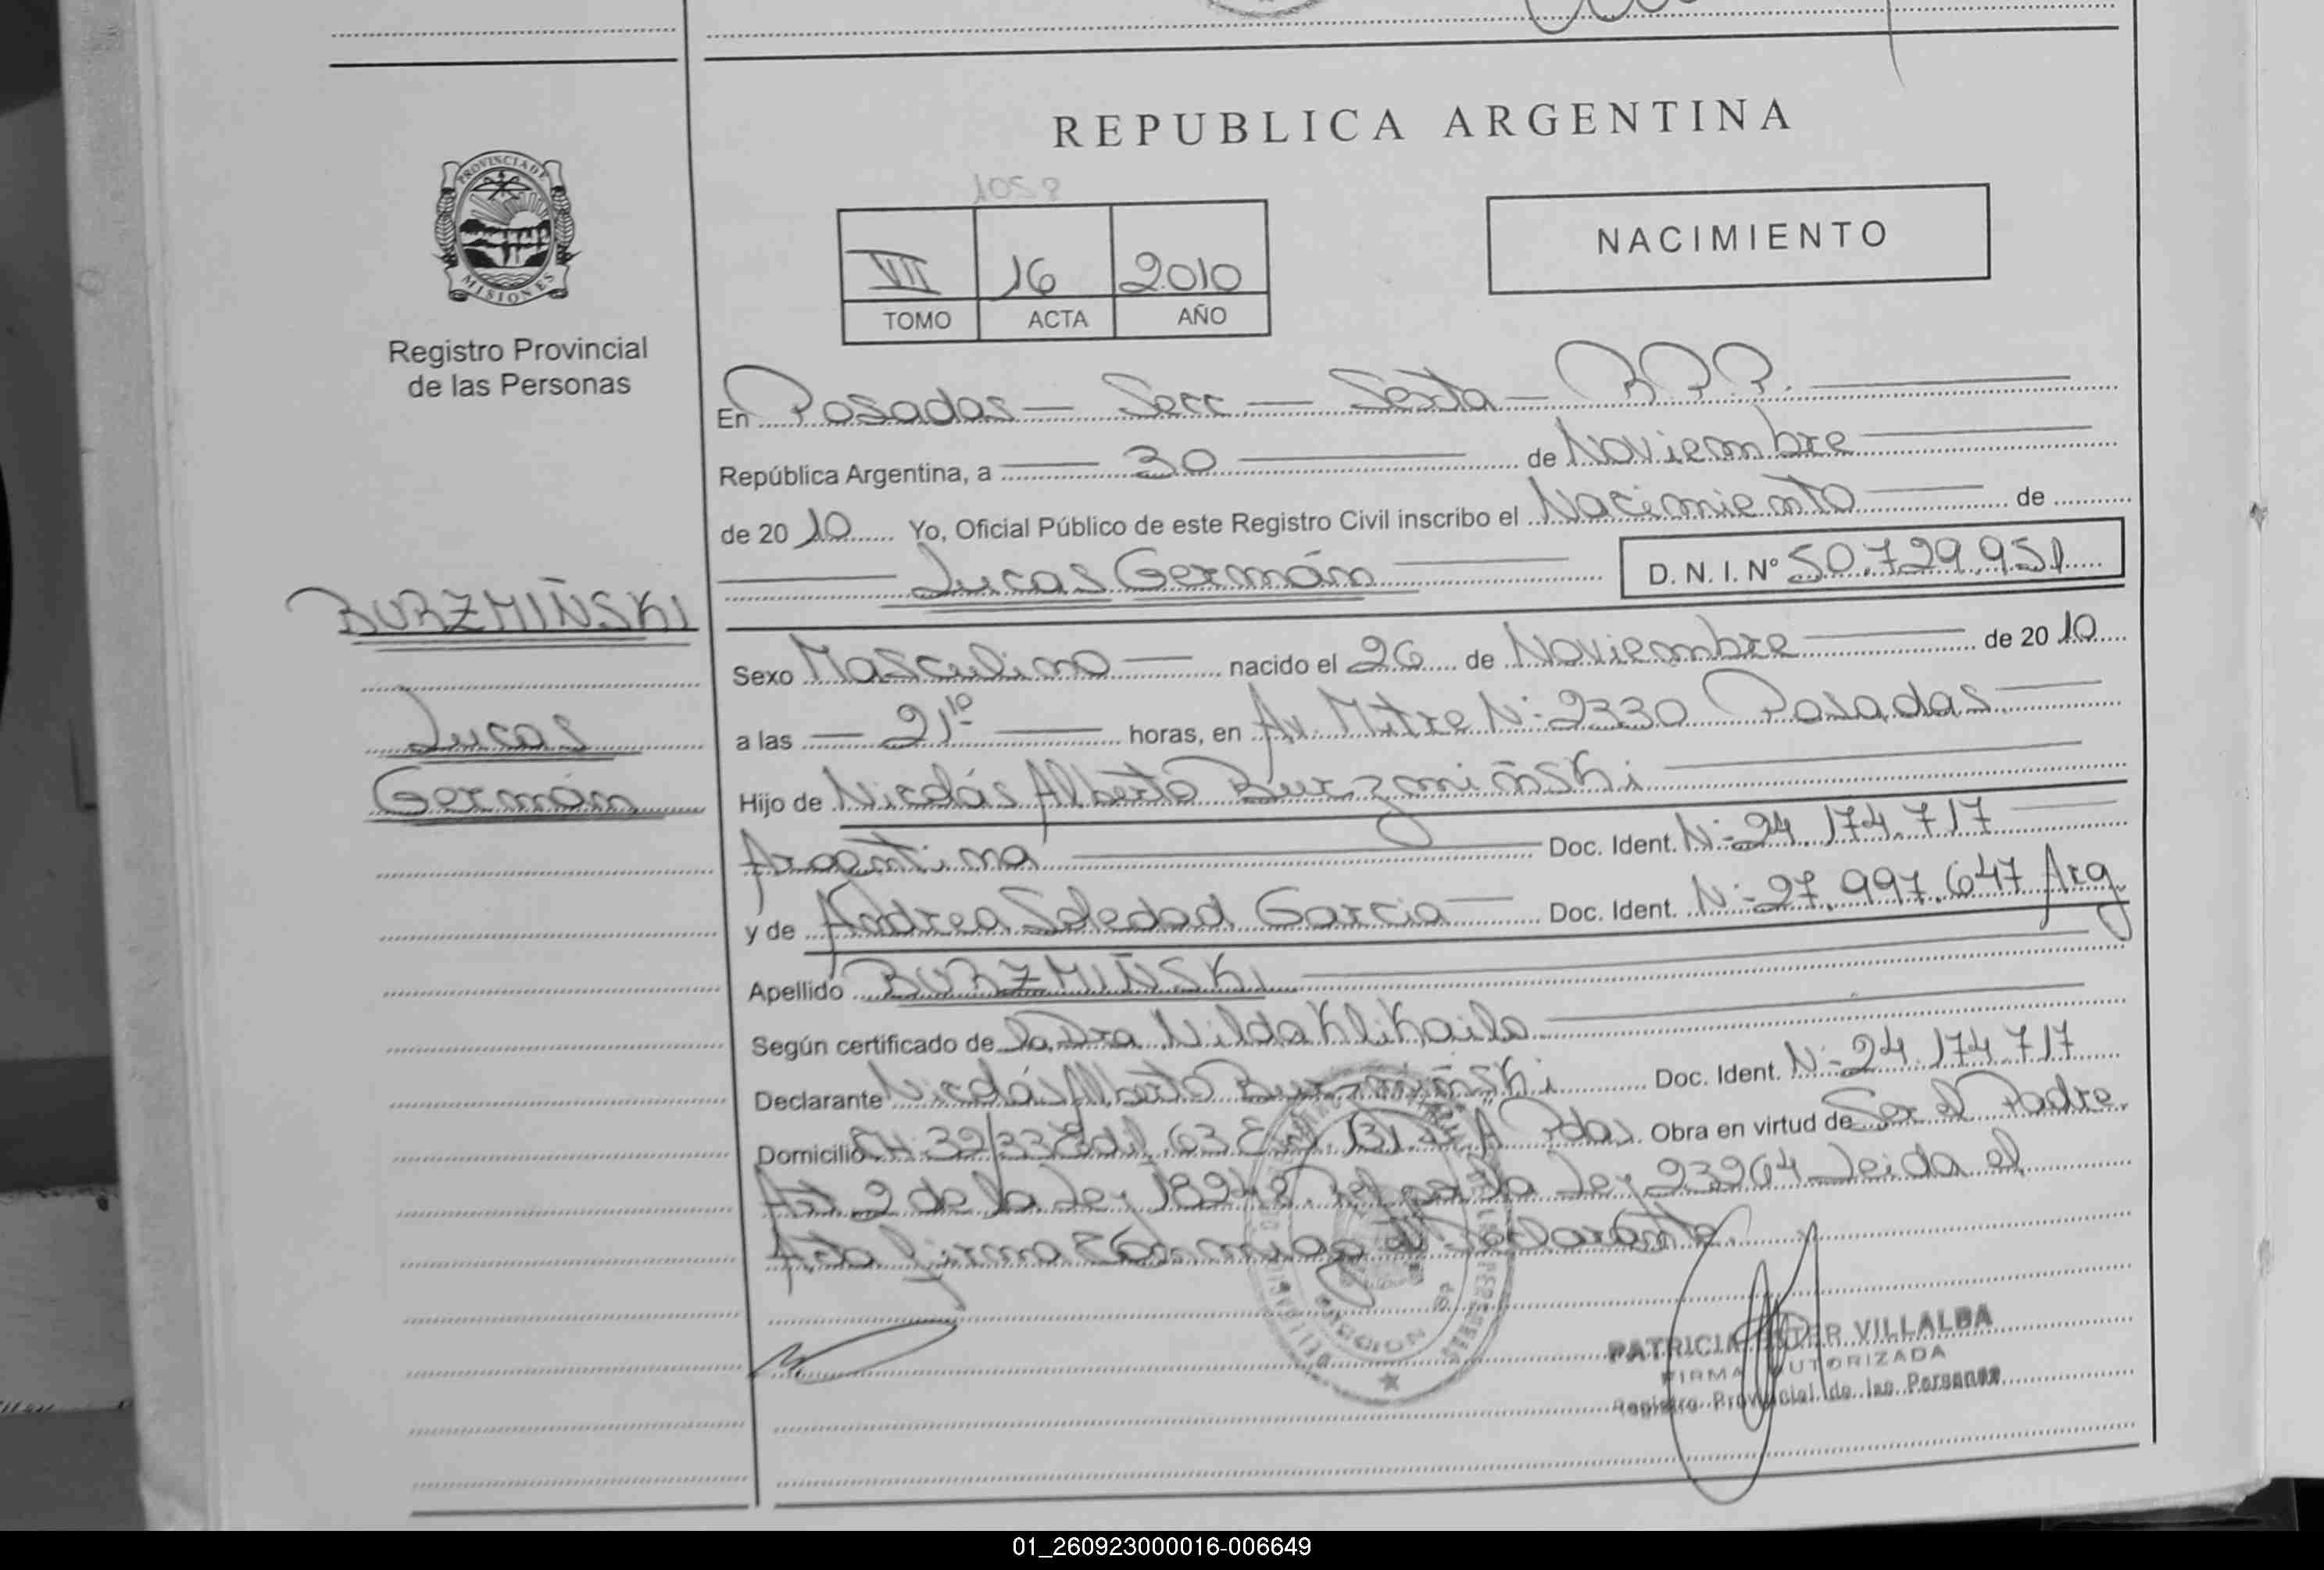 REPUBLICA ARGENTINA
PROVINCIA DE MISIONES
Registro Provincial
de las Personas
1058
VII 16 2010
TOMO ACTA AÑO
NACIMIENTO
En Posadas - Secc - Sexta - R.P.P.
República Argentina, a 30 de Noviembre
de 2010 Yo, Oficial Público de este Registro Civil inscribo el Nacimiento de
Lucas Germán D. N. I. N° 50.729.951
BURZMIÑSKI
Lucas
Germán
Sexo Masculino nacido el 26 de Noviembre de 2010
a las 21 10 horas, en Av. Mitre N: 2330 Posadas
Hijo de Nicolás Alberto Burzmiñski
Argentino Doc. Ident. N: 24.174.717
y de Andrea Soledad Garcia Doc. Ident. N: 27.997.647 Arg
Apellido BURZMIÑSKI
Según certificado de la Dra Nilda Klikailo
Declarante Nicolás Alberto Burzmiñski Doc. Ident. N: 24.174.717
Domicilio Pdas. Obra en virtud de Ser el Padre.
Art 2 de la Ley 18248. Ley 23264 Leida el
Acta firma conmigo el declarante.
PATRICIA ESTER VILLALBA
FIRMA AUTORIZADA
Registro Provincial de las Personas
01_260923000016-006649